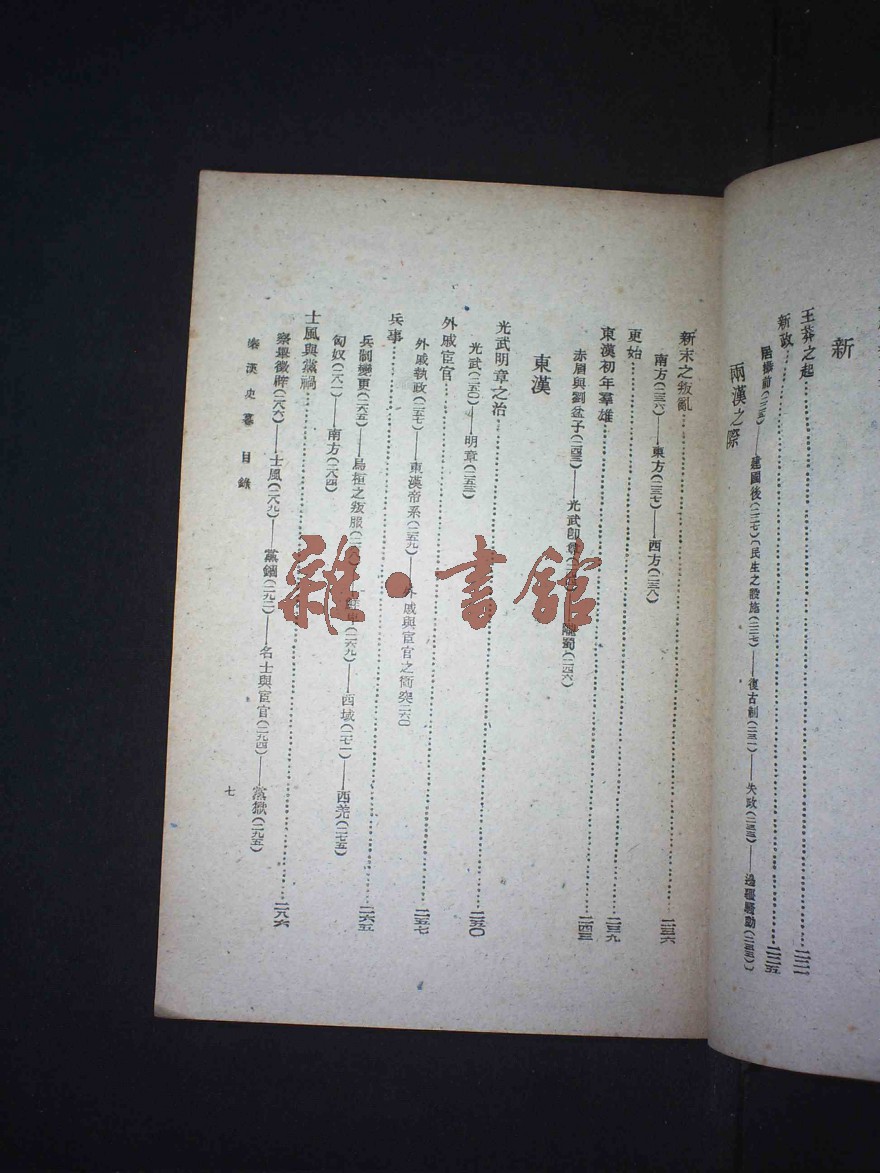 新
王莽之起……二二二
新政……二二五
居攝前(二二五)——建國後(二二七)(民生之設施(二二七)——復古制(二三一)——失政(二三三)——邊疆騷動(二三三))
兩漢之際
新末之叛亂……二三六
南方(二三六)——東方(二三七)——西方(二三八)
更始……二三九
東漢初年羣雄……二四三
赤眉與劉盆子(二四三)——光武——隴蜀(二四六)
東漢
光武明章之治……二五〇
光武(二五〇)——明章(二五三)
外戚宦官……二五七
外戚執政(二五七)——東漢帝系(二五九)——外戚與宦官之衝突(二六〇)
兵事……二六五
兵制變更(二六五)——烏桓之叛服——鮮卑(二六九)——西域(二七一)——西羌(二七五)
匈奴(二八二)——南方(二八四)
士風與黨禍……二八六
察舉徵辟(二八六)——士風(二八九)——黨錮(二九二)——名士與宦官(二九四)——黨獄(二九五)
秦漢史纂 目錄
七
雜·書館